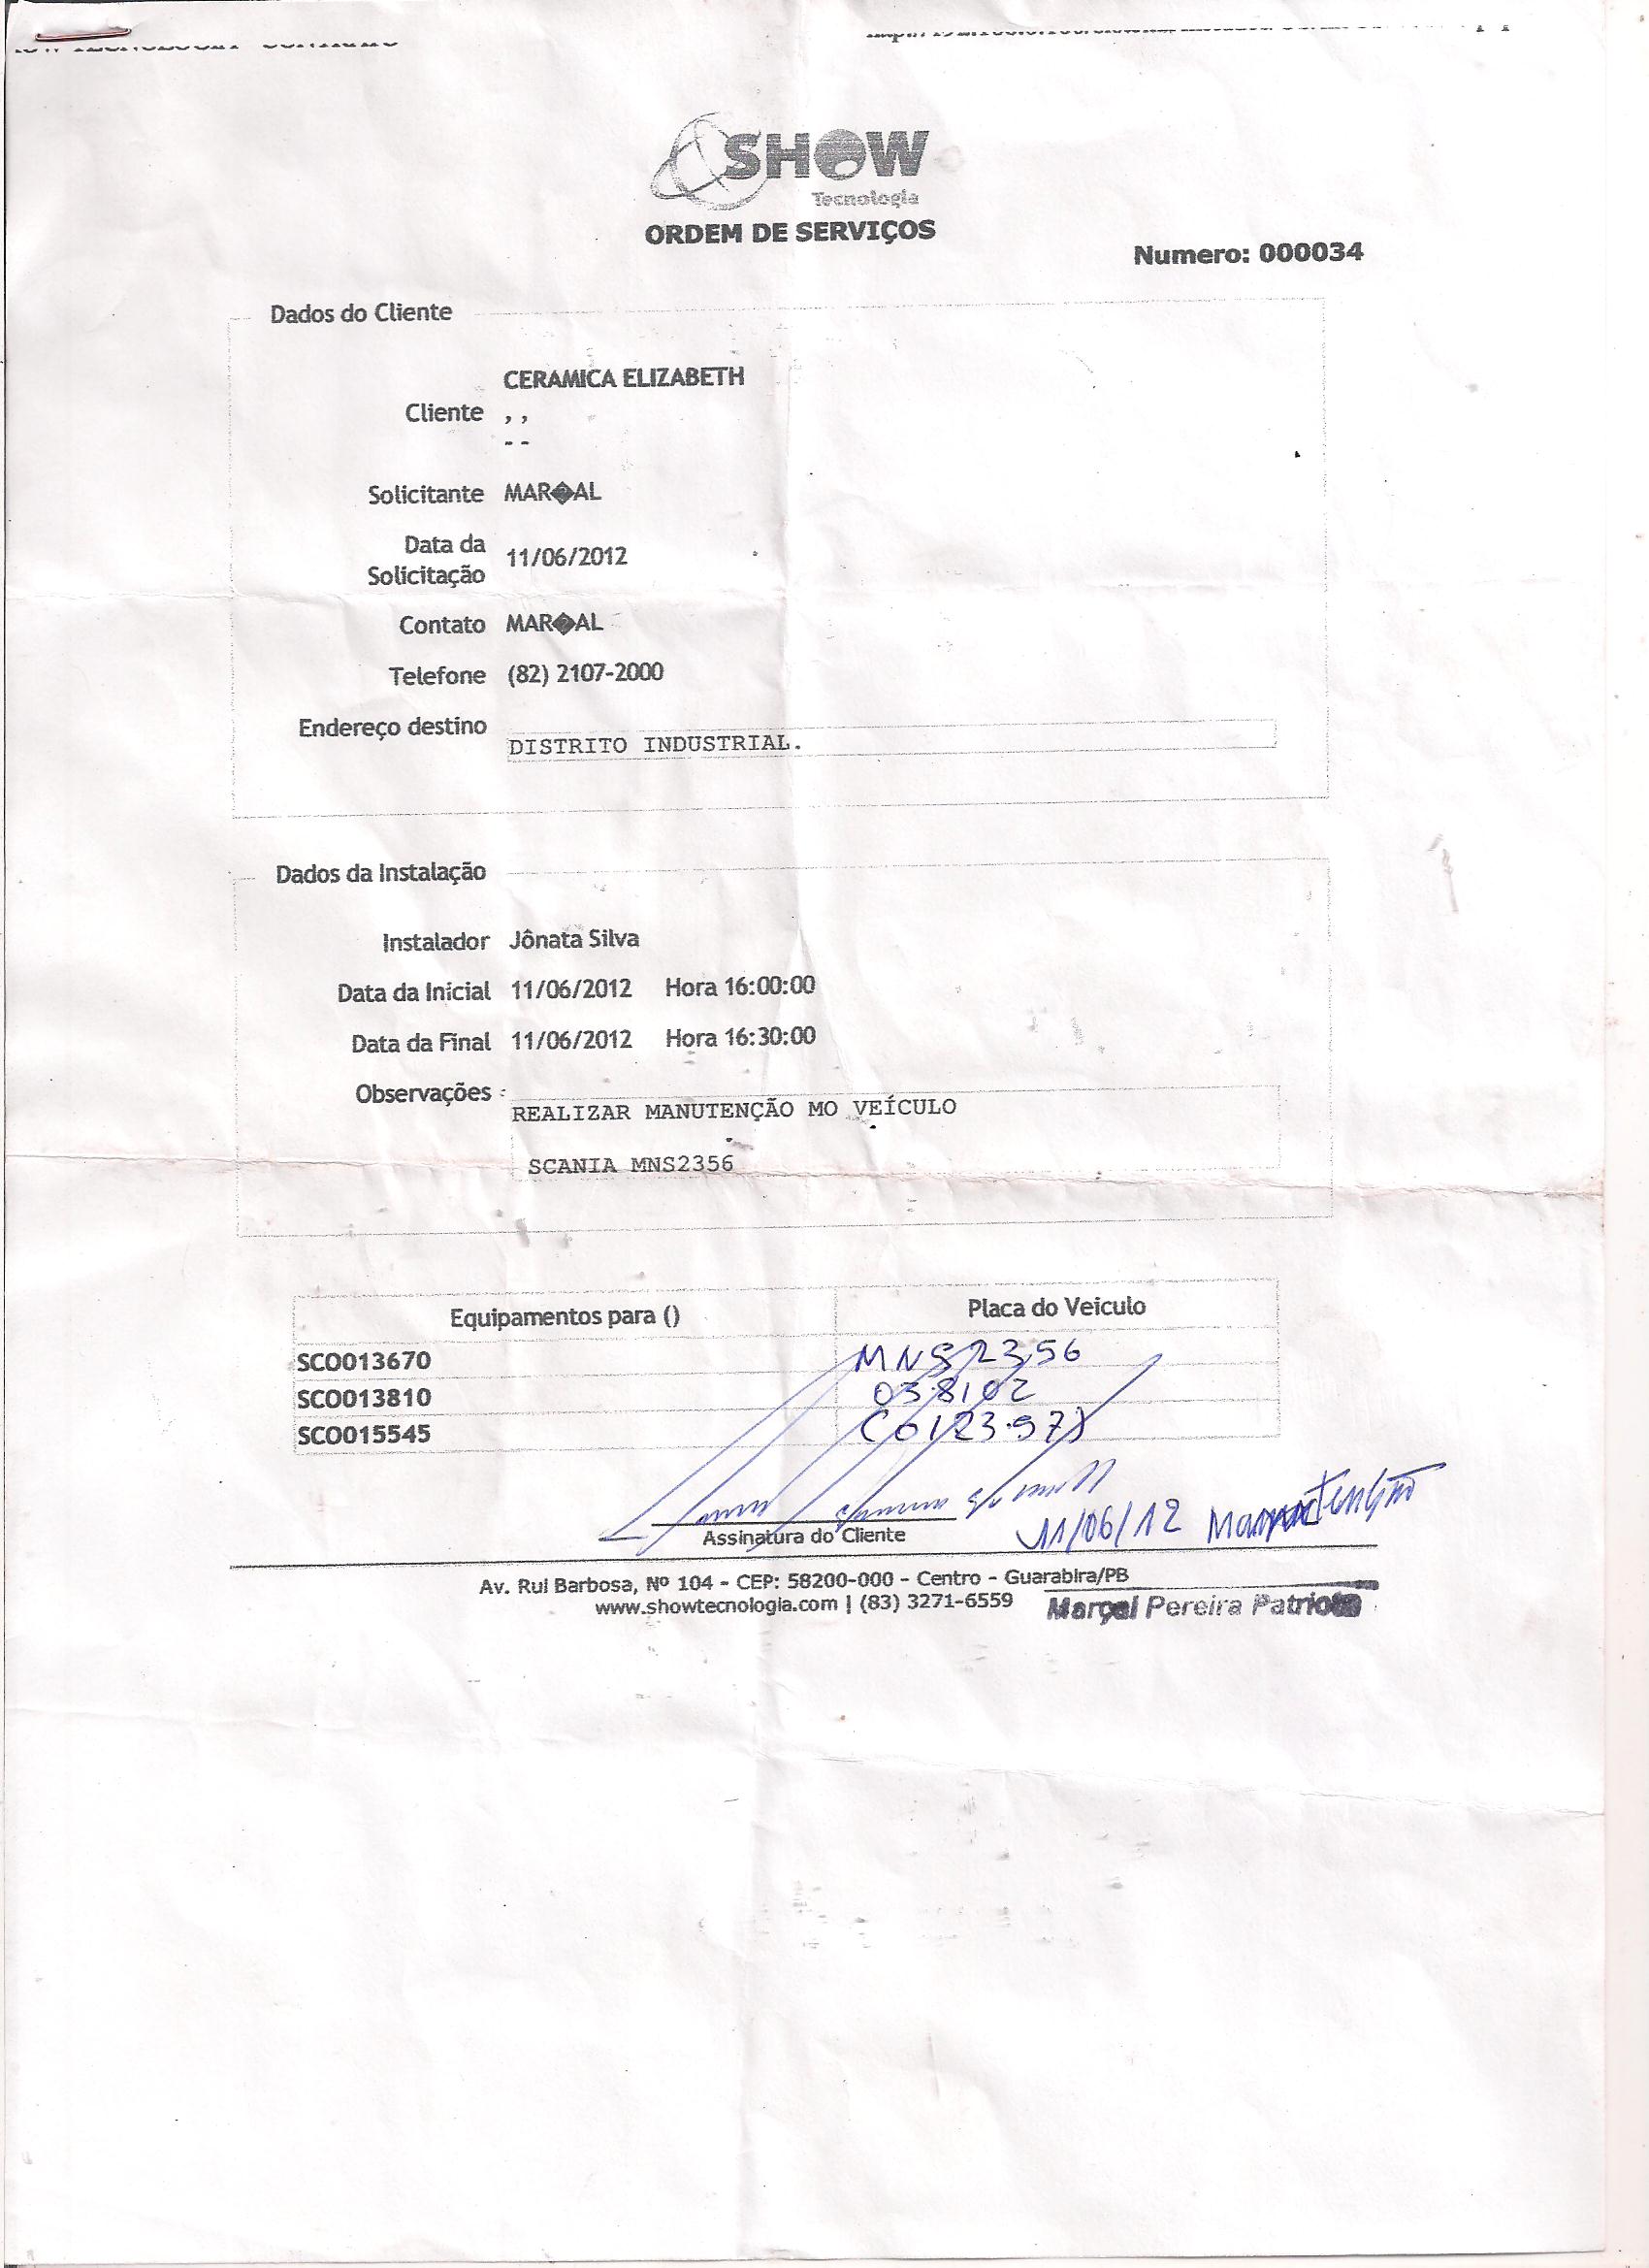 SHOW
Tecnologia
ORDEM DE SERVIÇOS
Numero: 000034
Dados do Cliente
CERAMICA ELIZABETH
Cliente , ,
- -
Solicitante MAR�AL
Data da
Solicitação 11/06/2012
Contato MAR�AL
Telefone (82) 2107-2000
Endereço destino
DISTRITO INDUSTRIAL.
Dados da Instalação
Instalador Jônata Silva
Data da Inicial 11/06/2012 Hora 16:00:00
Data da Final 11/06/2012 Hora 16:30:00
Observações
REALIZAR MANUTENÇÃO MO VEÍCULO
SCANIA MNS2356
Equipamentos para () Placa do Veiculo
SCO013670 MNS2356
SCO013810 038102
SCO015545
11/06/12
Assinatura do Cliente
Av. Rui Barbosa, Nº 104 - CEP: 58200-000 - Centro - Guarabira/PB
www.showtecnologia.com | (83) 3271-6559
Marçal Pereira Patriota